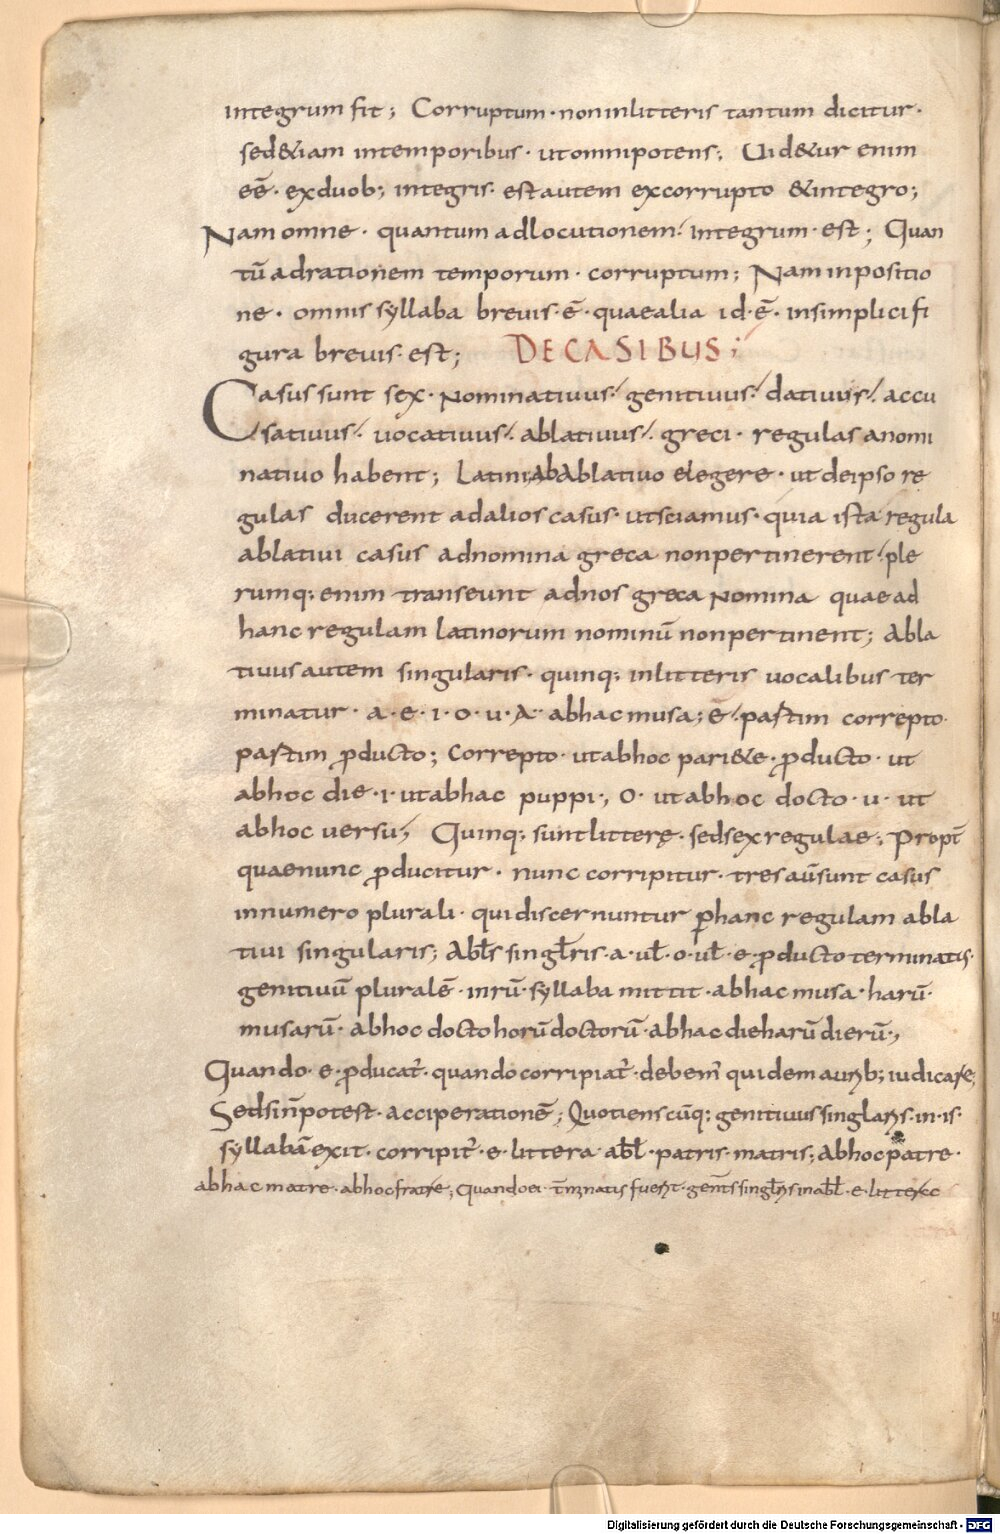 integrum fit; Corruptum · non inlitteris tantum dicitur ·
sed&iam intemporibus · utomnipotens; Uid&ur enim
eē · exduob; integris · est autem excorrupto &integro;
Nam omne · quantum adlocutionem · integrum · est; Quan
tū adrationem temporum · corruptum; Nam inpositio
ne · omnis syllaba breuis · ē · quaealia id · ē · insimplici fi
gura breuis · est; DE CASIBUS;
Casus sunt sex · Nominatiuus · genitiuus · datiuus · accu
satiuus · uocatiuus · ablatiuus · greci · regulas anomi
natiuo habent; Latini AbAblatiuo elegere · ut deipso re
gulas ducerent adalios casus · utsciamus · quia ista regula
ablatiui casus adnomina greca nonpertinerent · ple
rumq; enim transeunt adnos greca Nomina quae ad
hanc regulam latinorum nominū nonpertinent; Abla
tiuus autem singularis · quinq; inlitteris uocalibus ter
minatur · a · e · i · o · u · A · abhac musa; e · partim correpto ·
partim ꝓducto; Correpto · utabhoc pari&e · ꝓducto · ut
abhoc die · i · utabhac puppi; O · ut abhoc docto · u · ut
abhoc uersu; Quinq; sunt litterę · sedsex regulae; Propt̄
quae nunc ꝓducitur · nunc corripitur · tres aū sunt casus
innumero plurali · qui discernuntur ꝑhanc regulam abla
tiui singularis; Abłs singłris · a · uł · o · uł · e · ꝓducto terminatus ·
genitiuū pluralē · inrū · syllaba mittit · abhac musa · harū ·
musarū · abhoc docto horū doctorū · abhac die harū dierū;
Quando · e · ꝓducat̄ · quando corripiat̄ · debem̄ quidem aurib; iudicare;
Sed sin̄ potest · accipe rationē; Quotienscūq; genitiuus singlaris · in · is ·
syllabā exit · corripit̄ · e · littera abł · patris · matris; Abhoc patre ·
abhac matre · abhoc fratre; Quando ei · t̄minatus fuerit · genit̄s singłris in abł · e · littera